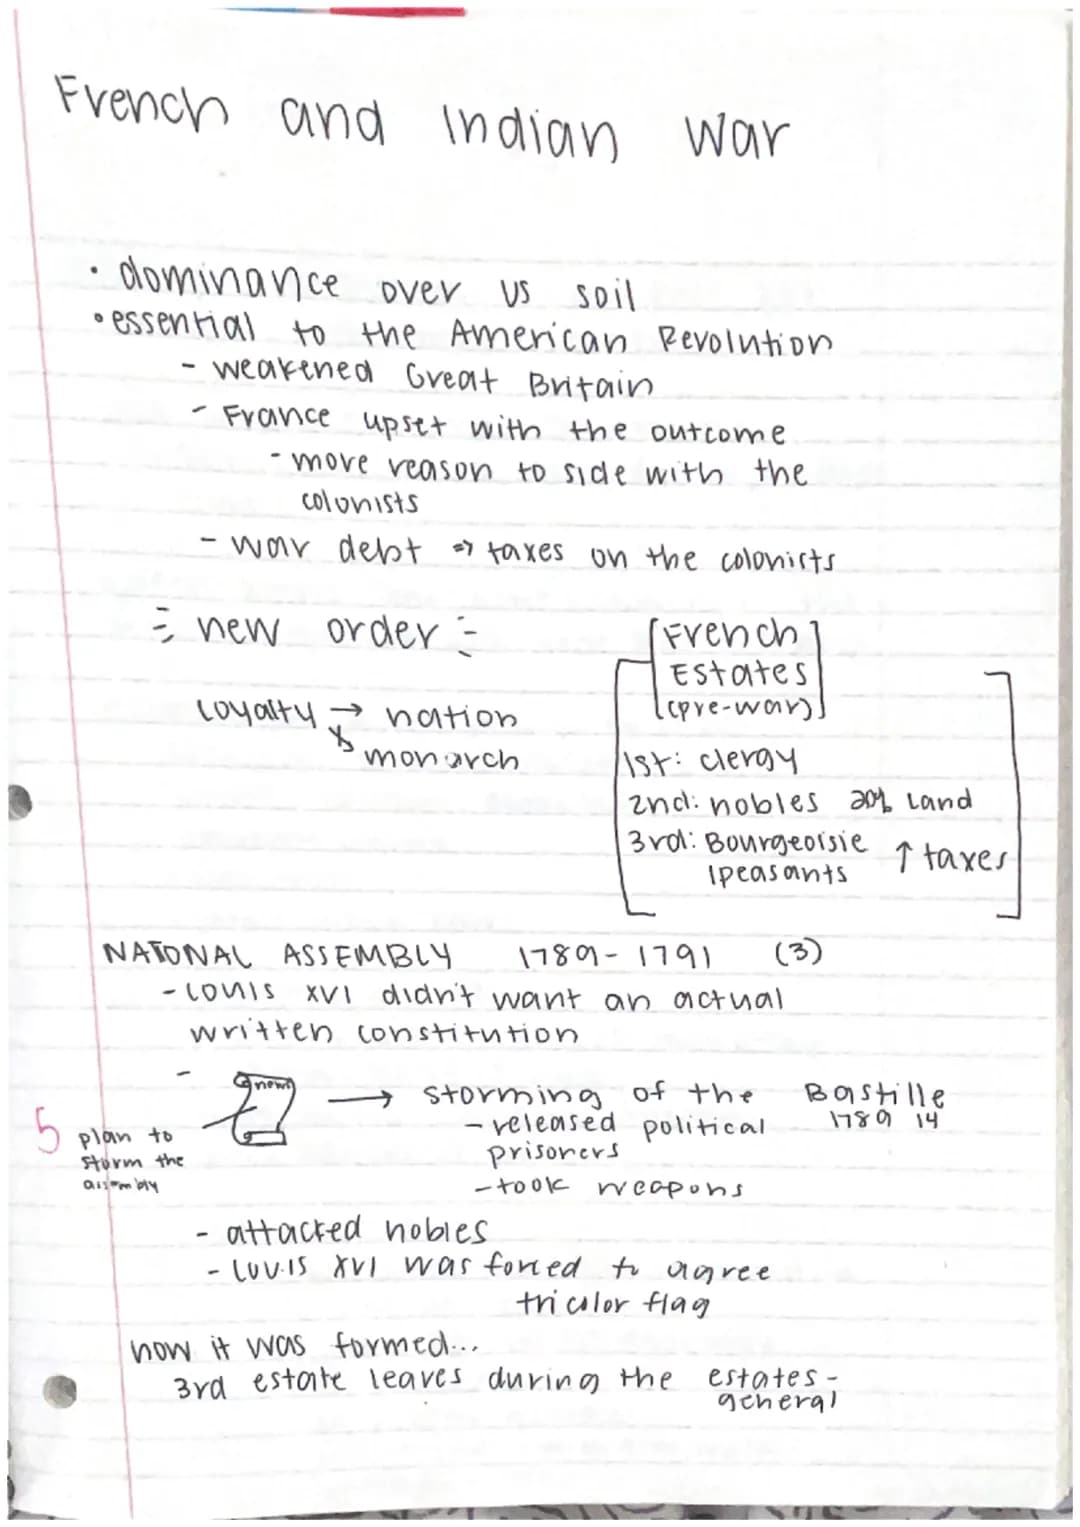 French and Indian War
• dominance over US soil
• essential to the American Revolution
- weakened Great Britain
- France upset with the outcome
- more reason to side with the
colonists
- war debt => taxes on the colonists
new order
loyalty → nation
monarch
[French
Estates
(pre-war)]
1st: clergy
2nd: nobles 20% land
3rd: Bourgeoisie ↑ taxes
/peasants
NATONAL ASSEMBLY 1789-1791 (3)
- Louis XVI didn't want an actual
written constitution
-
news → storming of the Bastille
1789 14
- released political
prisoners
- took weapons
5 plan to
storm the
assembly
- attacked nobles
- Louis XVI was forced to agree
tricolor flag
how it was formed...
3rd estate leaves during the estates-
general